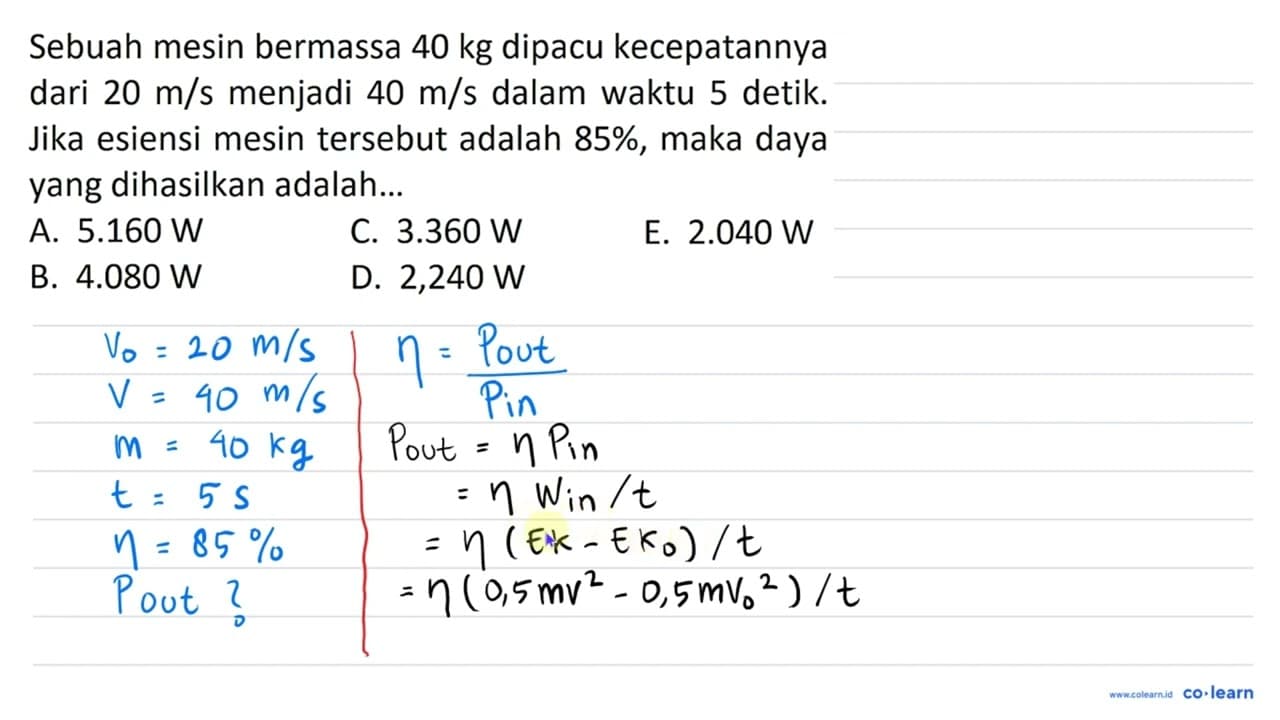 Sebuah mesin bermassa 40 kg dipacu kecepatannya
dari 20 m/s menjadi 40 m/s dalam waktu 5 detik.
Jika esiensi mesin tersebut adalah 85%, maka daya
yang dihasilkan adalah...
A. 5.160 W C. 3.360 W E. 2.040 W
B. 4.080 W D. 2,240 W
V₀ = 20 m/s
V = 40 m/s
m = 40 kg
t = 5 s
η = 85 %
Pout ?
η = Pout / Pin
Pout = η Pin
= η Win / t
= η (EK - EK₀) / t
= η (0,5 mv² - 0,5 mV₀²) / t
www.colearn.id co·learn